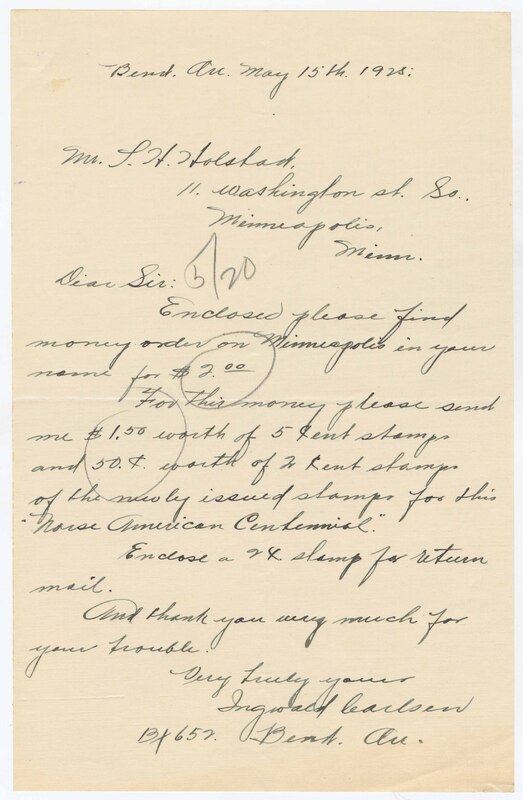 Bend. Ore. May 15th. 1925.
Mr. S. H. Holstad.
11. Washington st. So.,
Minneapolis,
Minn.
5/20
Dear Sir:
Enclosed please find
money order on Minneapolis in your
name for $2.00
For this money please send
me $1.50 worth of 5 Cent stamps
and 50.¢. worth of 2 Cent stamps
of the newly issued stamps for this
"Norse American Centennial".
Enclose a 2¢ stamp for return
mail.
And thank you very much for
your trouble.
Very truly yours
Ingwald Carlsen
Bx 652. Bend. Ore.